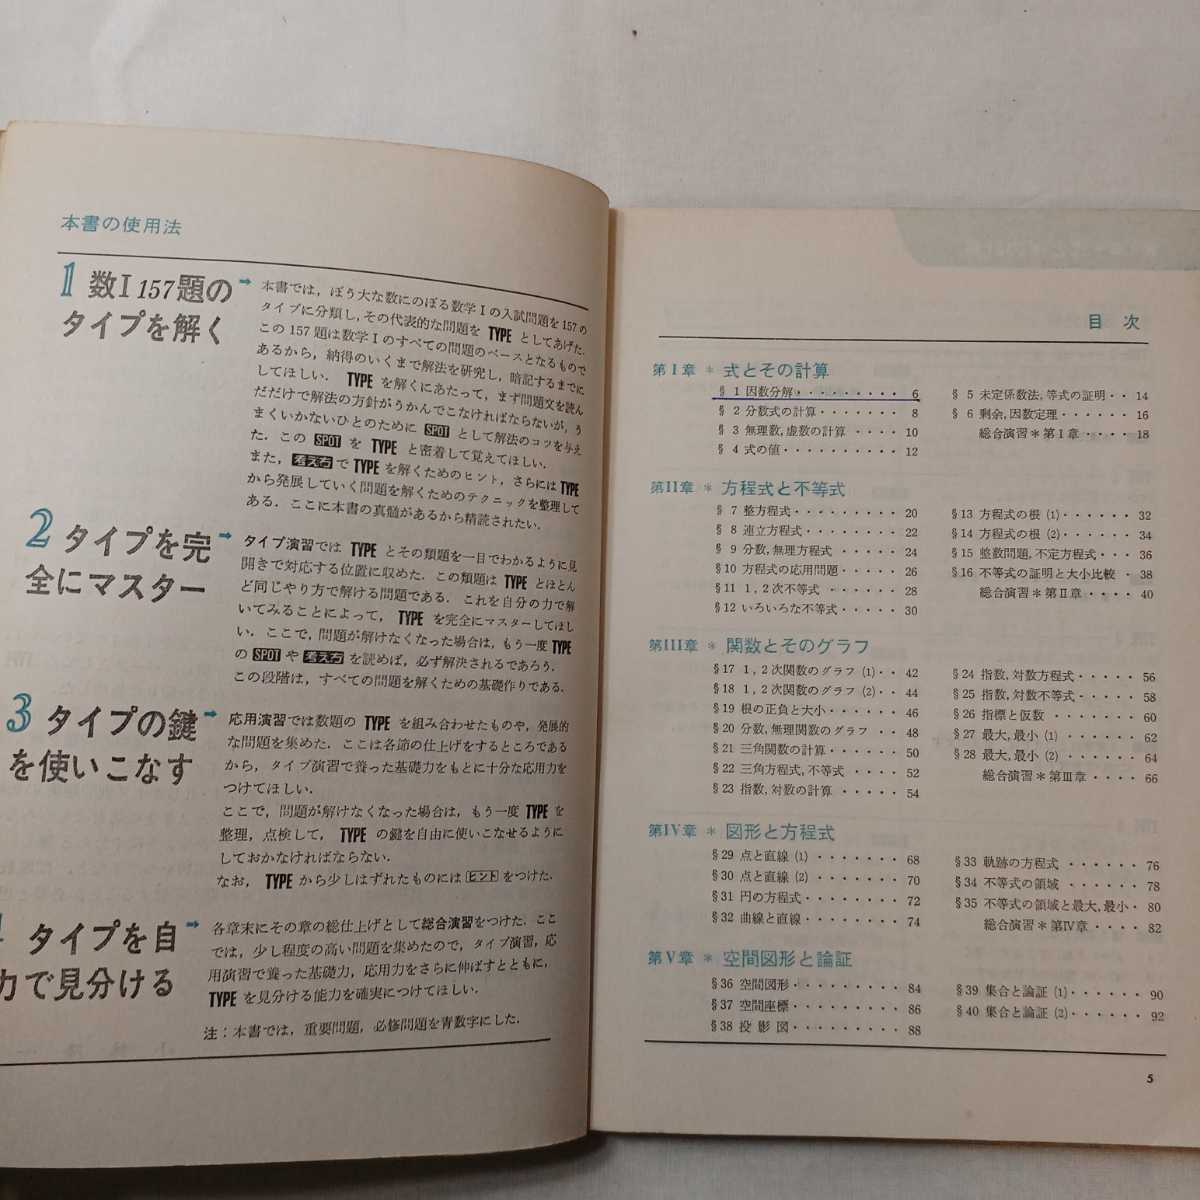 本書の使用法
1 数I 157題の
タイプを解く
→ 本書では，ぼう大な数にのぼる数学Iの入試問題を157の
タイプに分類し，その代表的な問題を TYPE としてあげた．
この157題は数学Iのすべての問題のベースとなるもので
あるから，納得のいくまで解法を研究し，暗記するまでに
してほしい． TYPE を解くにあたって，まず問題文を読ん
だだけで解法の方針がうかんでこなければならないが，う
まくいかないひとのために SPOT として解法のコツを与え
た．この SPOT を TYPE と密着して覚えてほしい．
また，考え方 で TYPE を解くためのヒント，さらには TYPE
から発展していく問題を解くためのテクニックを整理して
ある．ここに本書の真髄があるから精読されたい．
2 タイプを完
全にマスター
→ タイプ演習では TYPE とその類題を一目でわかるように見
開きで対応する位置に収めた．この類題は TYPE とほとん
ど同じやり方で解ける問題である．これを自分の力で解
いてみることによって， TYPE を完全にマスターしてほし
い．ここで，問題が解けなくなった場合は，もう一度 TYPE
の SPOT や 考え方 を読めば，必ず解決されるであろう．
この段階は，すべての問題を解くための基礎作りである．
3 タイプの鍵
を使いこなす
→ 応用演習では数題の TYPE を組み合わせたものや，発展的
な問題を集めた．ここは各節の仕上げをするところである
から，タイプ演習で養った基礎力をもとに十分な応用力を
つけてほしい．
ここで，問題が解けなくなった場合は，もう一度 TYPE を
整理，点検して， TYPE の鍵を自由に使いこなせるように
しておかなければならない．
なお， TYPE から少しはずれたものには ヒント をつけた．
4 タイプを自
力で見分ける
→ 各章末にその章の総仕上げとして総合演習をつけた．ここ
では，少し程度の高い問題を集めたので，タイプ演習，応
用演習で養った基礎力，応用力をさらに伸ばすとともに，
TYPE を見分ける能力を確実につけてほしい．
注：本書では，重要問題，必修問題を青数字にした．
目 次
第I章 * 式とその計算
§ 1 因数分解・・・・・・・・・ 6
§ 2 分数式の計算・・・・・・・ 8
§ 3 無理数，虚数の計算 ・・・・ 10
§ 4 式の値・・・・・・・・・・ 12
§ 5 未定係数法，等式の証明・・ 14
§ 6 剰余，因数定理・・・・・・ 16
総合演習＊第I章 ・・・・ 18
第II章 * 方程式と不等式
§ 7 整方程式・・・・・・・・・ 20
§ 8 連立方程式・・・・・・・・ 22
§ 9 分数，無理方程式 ・・・・・ 24
§10 方程式の応用問題・・・・・ 26
§11 1，2次不等式 ・・・・・・ 28
§12 いろいろな不等式・・・・・ 30
§13 方程式の根 (1)・・・・・・ 32
§14 方程式の根 (2)・・・・・・ 34
§15 整数問題，不定方程式・・・ 36
§16 不等式の証明と大小比較 ・ 38
総合演習＊第II章 ・・・・ 40
第III章 * 関数とそのグラフ
§17 1，2次関数のグラフ (1)・・ 42
§18 1，2次関数のグラフ (2)・・ 44
§19 根の正負と大小・・・・・・ 46
§20 分数，無理関数のグラフ ・・ 48
§21 三角関数の計算・・・・・・ 50
§22 三角方程式，不等式 ・・・・ 52
§23 指数，対数の計算 ・・・・・ 54
§24 指数，対数方程式・・・・・ 56
§25 指数，対数不等式・・・・・ 58
§26 指標と仮数 ・・・・・・・ 60
§27 最大，最小 (1) ・・・・・・ 62
§28 最大，最小 (2) ・・・・・・ 64
総合演習＊第III章 ・・・・ 66
第IV章 * 図形と方程式
§29 点と直線 (1) ・・・・・・・ 68
§30 点と直線 (2) ・・・・・・・ 70
§31 円の方程式・・・・・・・・ 72
§32 曲線と直線・・・・・・・・ 74
§33 軌跡の方程式 ・・・・・・ 76
§34 不等式の領域 ・・・・・・ 78
§35 不等式の領域と最大，最小・ 80
総合演習＊第IV章 ・・・・ 82
第V章 * 空間図形と論証
§36 空間図形・・・・・・・・・ 84
§37 空間座標・・・・・・・・・ 86
§38 投 影 図・・・・・・・・・ 88
§39 集合と論証 (1)・・・・・・ 90
§40 集合と論証 (2)・・・・・・ 92
5